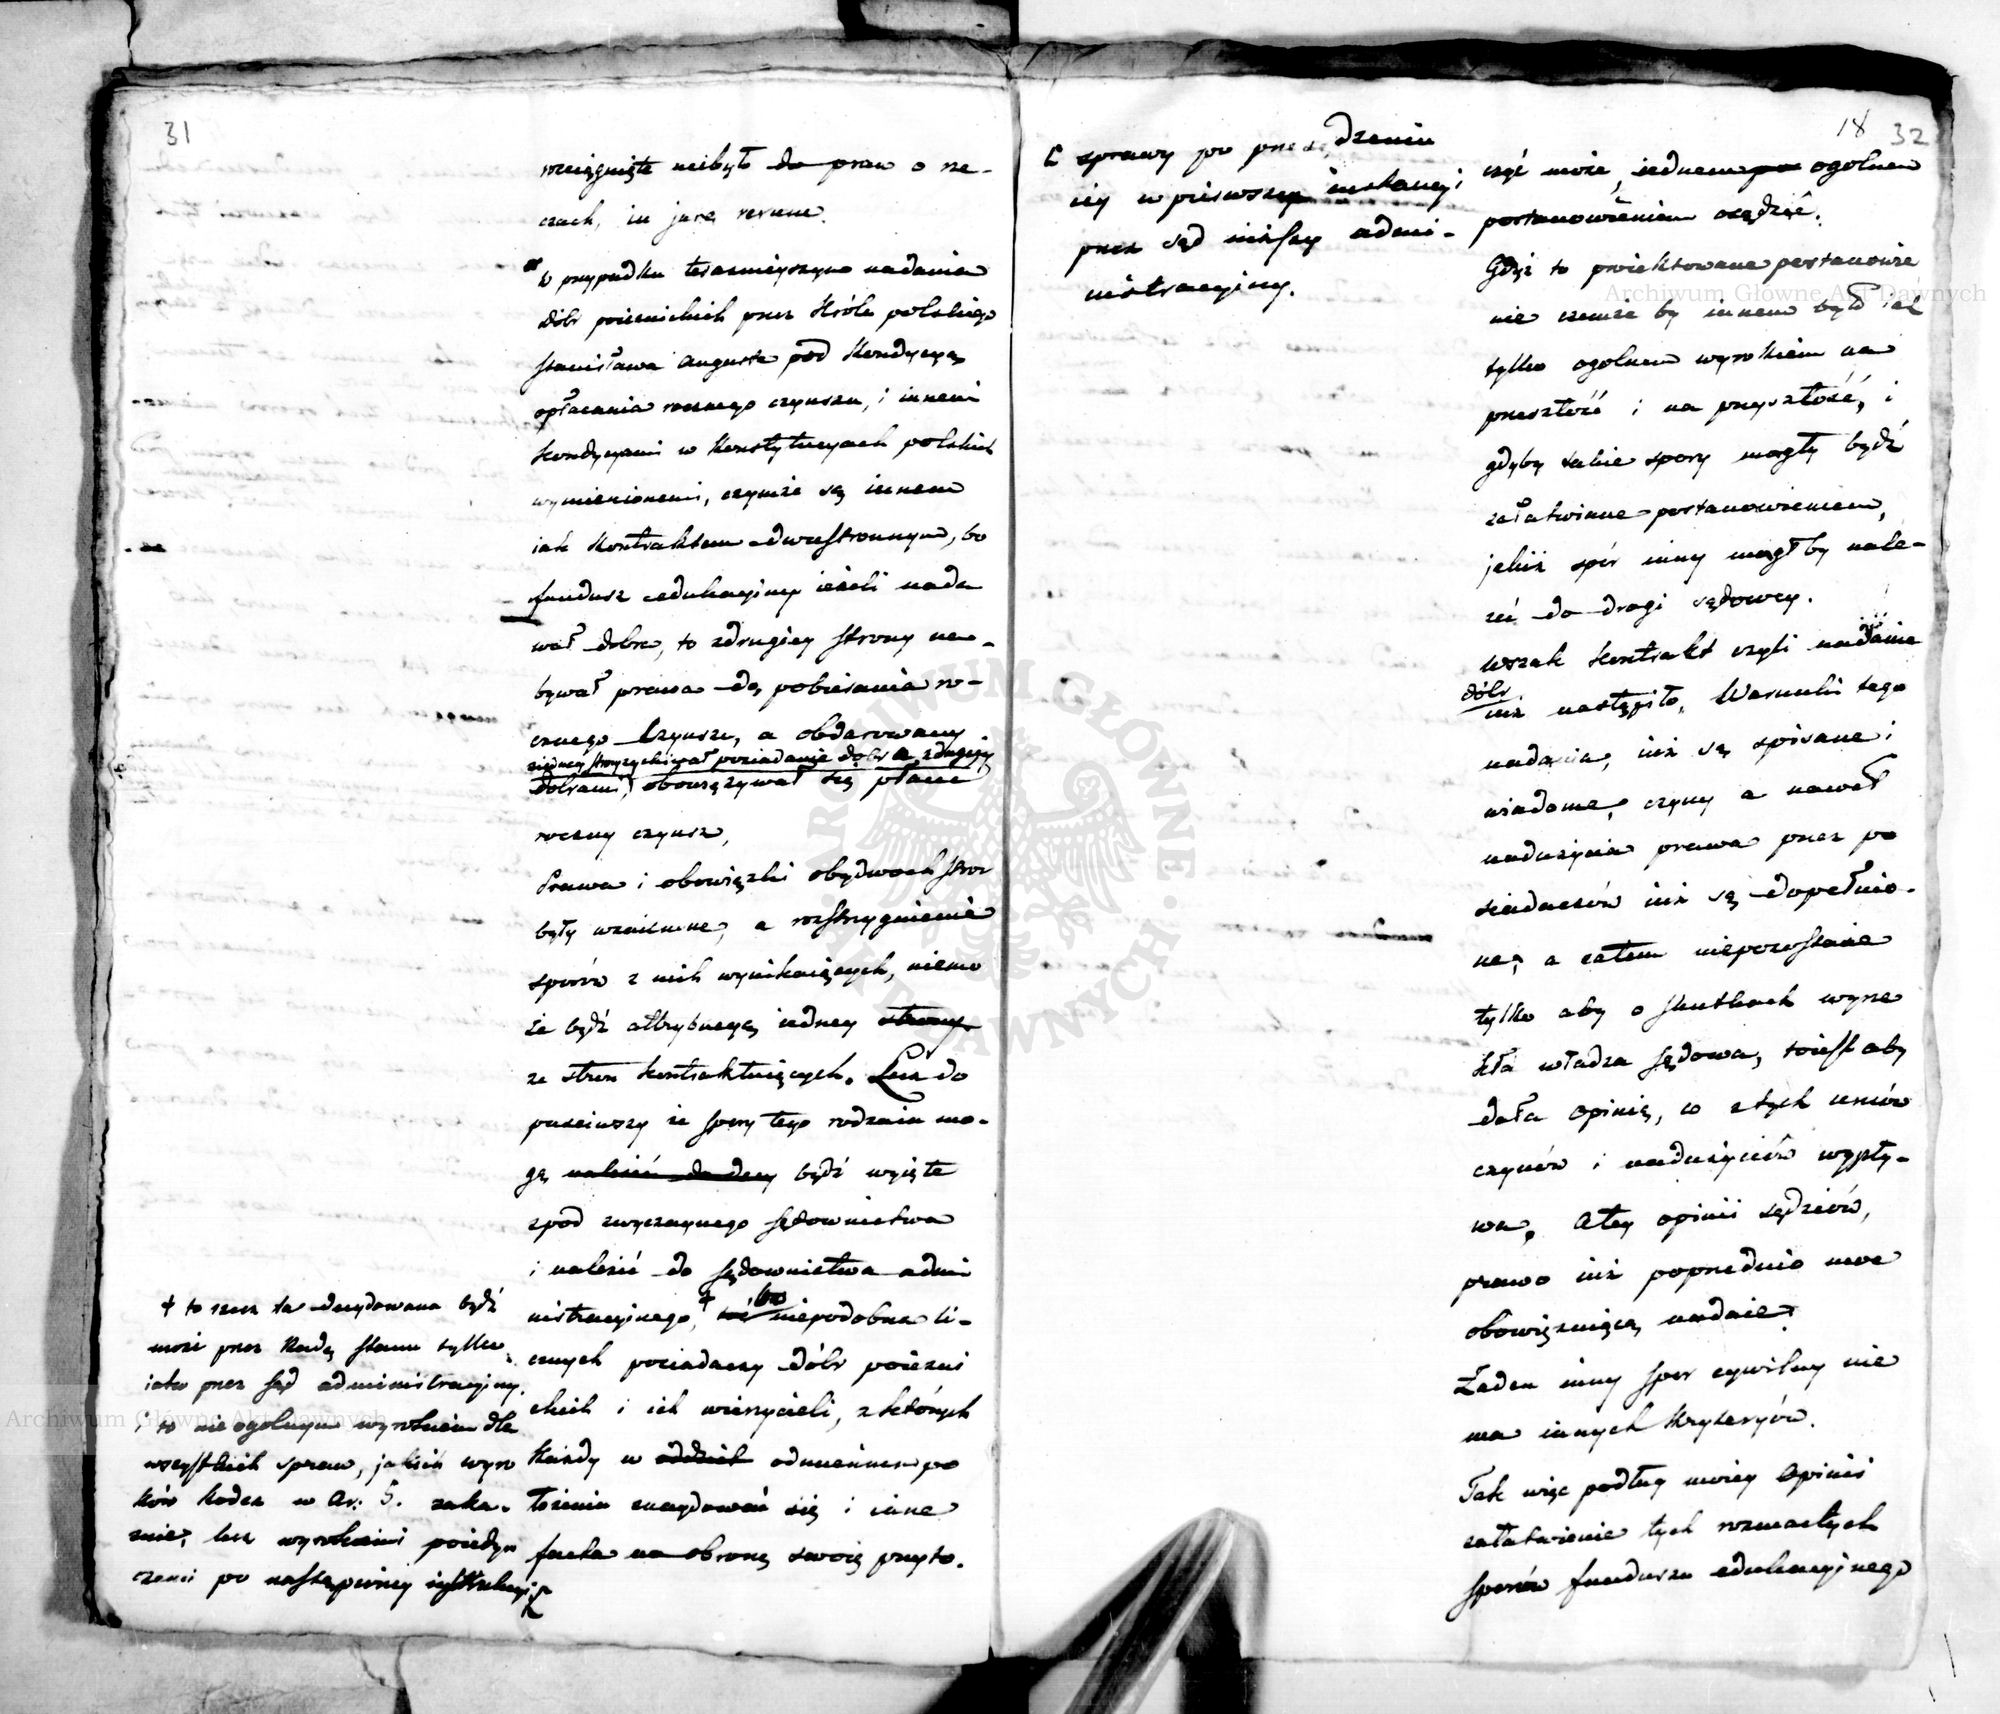 31
rozciągnięte niebyło do praw o rze-
czach, in jure rerum.
w przypadku teraznieyszym nadania
dóbr poiezuickich przez Króla polskiego
Stanisława Augusta pod Kondycyą
opłacania rocznego czynszu, i innemi
Kondycyami w Konstytucyach polskich
wymienionemi, czymże są innem
iak Kontraktem dwustronnym, bo
fundusz edukacyiny ieżeli nada
wał dobra, to zdrugiey strony na-
bywał prawa do pobierania ro-
cznego Czynszu, a obdarowany
ziedney strony zyskiwał posiadanie dóbr a zdrugiey
dobrami, obowiązywał się płacić
roczny czynsz,
Prawa i obowiązki obydwoch stron
były wzaiemne, a rozstrzygnienie
sporów z nich wynikaiących, niemo
że bydź attrybucyą iedney strony
ze stron kontraktuiących. Lecz do
puściwszy że spory tego rodzaiu mo-
gą należeć do decy bydź wyięte
zpod zwyczaynego sądownictwa
i należeć do sądownictwa admi
nistracyinego, + bo niepodobna li-
cznych posiadaczy dóbr poiezui
ckich i ich wierzycieli, z których
każdy w oddziel odmiennem po
łożeniu znaydować się i inne
fakta na obronę swoię przyto-
+ to rzecz ta decydowana bydź
może przez Radę stanu tylko,
iako przez sąd administracyiny.
i to nie ogolnym wyrokiem dla
wszystkich spraw, jakich wyro
ków Kodex w Ar: 5. zaka-
zuie, lecz wyrokami poiedyn
czemi po nastąpioney instrukcyi
18 32
sprawy po przesądzeniu
iey w pierwszey instancyi
przez sąd niższy admi-
nistracyiny.
czyć może, iednem ogolnem
postanowieniem osądzić.
Gdyż to proiektowane postanowie
nie czemże by innem było iak
tylko ogolnem wyrokiem na
przeszłość i na przyszłość, i
gdyby takie spory mogły bydź
załatwione postanowieniem,
jakiż spór inny mogłby nale-
żeć do drogi sądowey.
Wszak Kontrakt czyli nadanie
dóbr
iuż nastąpiło, Warunki tego
nadania, iuż są spisane i
wiadome, czyny a nawet
nadużycia prawa przez po
siadaczów iuż są dopełnio-
ne, a zatem niepozostaie
tylko aby o skutkach wyrze
kła władza sądowa, to iest aby
dała opinię, co z tych umów
czynów i nadużyciów wypły-
wa, A tey opinii sędziów,
prawo iuż poprzednio moc
obowięzuiącą nadaie.
Żaden inny spor cywilny nie
ma innych Kryteryów.
Tak więc podług moiey opinii
załatwienie tych rozmaitych
sporów funduszu edukacyinego
Archiwum Główne Akt Dawnych
Archiwum Główne Akt Dawnych
ARCHIWUM GŁÓWNE AKT DAWNYCH